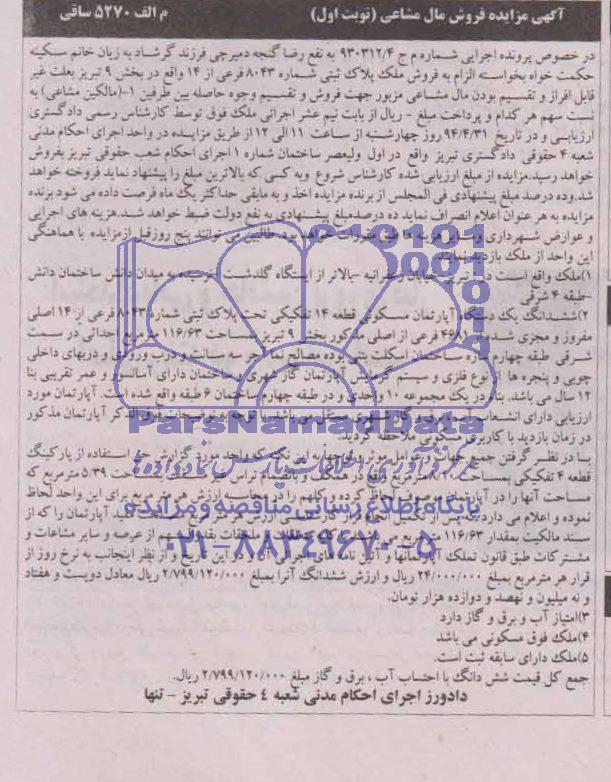 آگهی مزایده فروش مال مشاعی (نوبت اول)
م الف ۵۲۷۰ ساقی
در خصوص پرونده اجرایی شماره م ج ۹۳۰۳۱۲/۴ به نفع رضا گنجه دمیرچی فرزند گرشاد به زیان خانم سکینه
حکمت خواه بخواسته الزام به فروش ملک پلاک ثبتی شماره ۸۰۴۳ فرعی از ۱۴ واقع در بخش ۹ تبریز بعلت غیر
قابل افراز و تقسیم بودن مال مشاعی مزبور جهت فروش و تقسیم وجوه حاصله بین طرفین ۱-(مالکین مشاعی) به
نسبت سهم هر کدام و پرداخت مبلغ - ریال از بابت نیم عشر اجرائی ملک فوق توسط کارشناس رسمی دادگستری
ارزیابی و در تاریخ ۹۴/۴/۳۱ روز چهارشنبه از ساعت ۱۱ الی ۱۲ از طریق مزایده در واحد اجرای احکام مدنی
شعبه ۴ حقوقی دادگستری تبریز واقع در اول ولیعصر ساختمان شماره ۱ اجرای احکام شعب حقوقی تبریز بفروش
خواهد رسید.مزایده از مبلغ ارزیابی شده کارشناس شروع وبه کسی که بالاترین مبلغ را پیشنهاد نماید فروخته خواهد
شد.وده درصد مبلغ پیشنهادی فی المجلس از برنده مزایده اخذ و به مابقی حداکثر یک ماه فرصت داده می شود برنده
مزایده به هر عنوان اعلام انصراف نماید ده درصدمبلغ پیشنهادی به نفع دولت ضبط خواهد شد.هزینه های اجرایی
و عوارض شهرداری و سایر هزینه ها طبق مقررات خواهد بود.طالبین می توانند پنج روزقبل ازمزایده با هماهنگی
این واحد از ملک بازدید نمایند.
۱)ملک واقع است در تبریز خیابان زعفرانیه -بالاتر از ایستگاه گلدشت نرسیده به میدان دانش ساختمان دانش
-طبقه ۴ شرقی
۲)ششدانگ یک دستگاه آپارتمان مسکونی قطعه ۱۴ تفکیکی تحت پلاک ثبتی شماره ۸۰۴۳ فرعی از ۱۴ اصلی
مفروز و مجزی شده از ۴۶۸۱ فرعی از اصلی مذکور بخش ۹ تبریز بمساحت ۱۱۶/۶۳ مترمربع احداثی در سمت
شرقی طبقه چهارم ساختمان اسکلت بتنی بوده مصالح نما آجر سه سانت و درب ورودی و دربهای داخلی
چوبی و پنجره ها از نوع فلزی و سیستم گرمایش آپارتمان گاز شهری ساختمان دارای آسانسور و عمر تقریبی بنا
۱۲ سال می باشد. بنا در یک مجموعه ۱۰ واحدی و در طبقه چهارم ساختمان ۶ طبقه واقع شده است. آپارتمان مورد
ارزیابی دارای انشعاب آب و برق و گاز شهری مستقل می باشد. با توجه به توضیحات فوق الذکر آپارتمان مذکور
در زمان بازدید با کاربری مسکونی ملاحظه گردید.
با در نظر گرفتن جمیع جهات و عوامل موثر و باتوجه به این نکته که واحد مورد گزارش حق استفاده از پارکینگ
قطعه ۴ تفکیکی بمساحت ۸/۲۰ مترمربع واقع در همکف و بانضمام تراس غیر مسقف بمساحت ۵/۳۹ مترمربع که
مساحت آنها را در آپارتمان موصوف لحاظ کرده و کلهم را در محاسبه ارزش هر متر مربع برای این واحد لحاظ
نموده و اعلام می دارد که پس از تکمیل انجام کارشناسی ارزش هر متر مربع آپارتمان را که از
سند مالکیت بمقدار ۱۱۶/۶۳ مترمربع می باشد ملحقات بقدر السهم از عرصه و سایر مشاعات و
مشترکات طبق قانون تملک آپارتمانها و آئین نامه اجرائی آن و در این تاریخ و از نظر اینجانب به نرخ روز از
قرار هر مترمربع بمبلغ ۲۴/۰۰۰/۰۰۰ ریال و ارزش ششدانگ آنرا بمبلغ ۲/۷۹۹/۱۲۰/۰۰۰ ریال معادل دویست و هفتاد
و نه میلیون و نهصد و دوازده هزار تومان.
۳)امتیاز آب و برق و گاز دارد
۴)ملک فوق مسکونی می باشد
۵)ملک دارای سابقه ثبت است.
جمع کل قیمت شش دانگ با احتساب آب ، برق و گاز مبلغ ۲/۷۹۹/۱۲۰/۰۰۰ ریال.
دادورز اجرای احکام مدنی شعبه ٤ حقوقی تبریز - تنها
ParsNamadData
مرکز فرآوری اطلاعات پارس نماد داده ها
پایگاه اطلاع رسانی مناقصه و مزایده
۰۲۱-۸۸۳۴۹۶۷۰-۵